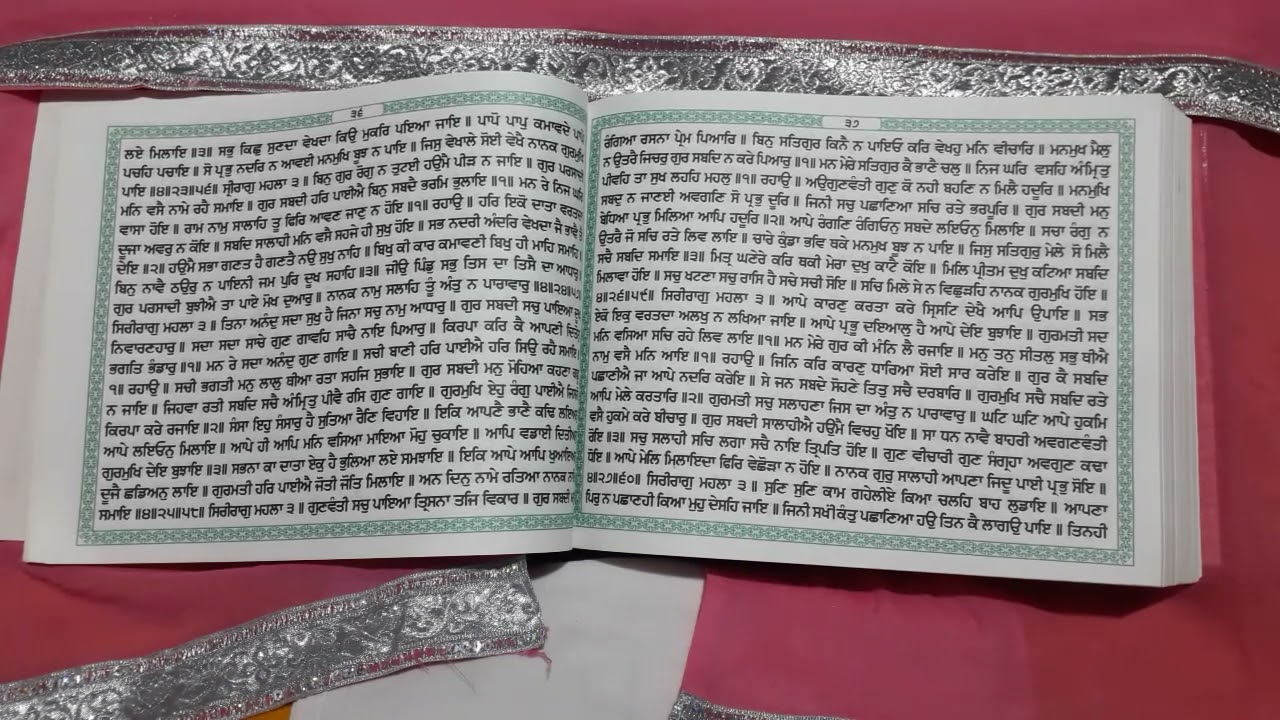 ੩੬
ਲਏ ਮਿਲਾਇ ॥੩॥ ਸਭੁ ਕਿਛੁ ਸੁਣਦਾ ਵੇਖਦਾ ਕਿਉ ਮੁਕਰਿ ਪਇਆ ਜਾਇ ॥ ਪਾਪੋ ਪਾਪੁ ਕਮਾਵਦੇ ਪਾਪੇ
ਪਚਹਿ ਪਚਾਇ ॥ ਸੋ ਪ੍ਰਭੁ ਨਦਰਿ ਨ ਆਵਈ ਮਨਮੁਖਿ ਬੂਝ ਨ ਪਾਇ ॥ ਜਿਸੁ ਵੇਖਾਲੇ ਸੋਈ ਵੇਖੈ ਨਾਨਕ ਗੁਰਮੁਖਿ
ਪਾਇ ॥੪॥੨੩॥੫੬॥ ਸ੍ਰੀਰਾਗੁ ਮਹਲਾ ੩ ॥ ਬਿਨੁ ਗੁਰ ਰੋਗੁ ਨ ਤੁਟਈ ਹਉਮੈ ਪੀੜ ਨ ਜਾਇ ॥ ਗੁਰ ਪਰਸਾਦੀ
ਮਨਿ ਵਸੈ ਨਾਮੇ ਰਹੈ ਸਮਾਇ ॥ ਗੁਰ ਸਬਦੀ ਹਰਿ ਪਾਈਐ ਬਿਨੁ ਸਬਦੈ ਭਰਮਿ ਭੁਲਾਇ ॥੧॥ ਮਨ ਰੇ ਨਿਜ ਘਰਿ
ਵਾਸਾ ਹੋਇ ॥ ਰਾਮ ਨਾਮੁ ਸਾਲਾਹਿ ਤੂ ਫਿਰਿ ਆਵਣ ਜਾਣੁ ਨ ਹੋਇ ॥੧॥ ਰਹਾਉ ॥ ਹਰਿ ਇਕੋ ਦਾਤਾ ਵਰਤਦਾ
ਦੂਜਾ ਅਵਰੁ ਨ ਕੋਇ ॥ ਸਬਦਿ ਸਾਲਾਹੀ ਮਨਿ ਵਸੈ ਸਹਜੇ ਹੀ ਸੁਖੁ ਹੋਇ ॥ ਸਭ ਨਦਰੀ ਅੰਦਰਿ ਵੇਖਦਾ ਜੈ ਭਾਵੈ ਤੈ
ਦੇਇ ॥੨॥ ਹਉਮੈ ਸਭਾ ਗਣਤ ਹੈ ਗਣਤੈ ਨਉ ਸੁਖੁ ਨਾਹਿ ॥ ਬਿਖੁ ਕੀ ਕਾਰ ਕਮਾਵਣੀ ਬਿਖੁ ਹੀ ਮਾਹਿ ਸਮਾਹਿ ॥
ਬਿਨੁ ਨਾਵੈ ਠਉਰੁ ਨ ਪਾਇਨੀ ਜਮ ਪੁਰਿ ਦੂਖ ਸਹਾਹਿ ॥੩॥ ਜੀਉ ਪਿੰਡੁ ਸਭੁ ਤਿਸ ਦਾ ਤਿਸੈ ਦਾ ਆਧਾਰੁ ॥
ਗੁਰ ਪਰਸਾਦੀ ਬੁਝੀਐ ਤਾ ਪਾਏ ਮੋਖ ਦੁਆਰੁ ॥ ਨਾਨਕ ਨਾਮੁ ਸਲਾਹਿ ਤੂੰ ਅੰਤੁ ਨ ਪਾਰਾਵਾਰੁ ॥੪॥੨੪॥੫੭॥
ਸਿਰੀਰਾਗੁ ਮਹਲਾ ੩ ॥ ਤਿਨਾ ਅਨੰਦੁ ਸਦਾ ਸੁਖੁ ਹੈ ਜਿਨਾ ਸਚੁ ਨਾਮੁ ਆਧਾਰੁ ॥ ਗੁਰ ਸਬਦੀ ਸਚੁ ਪਾਇਆ ਦੂਖ
ਨਿਵਾਰਣਹਾਰੁ ॥ ਸਦਾ ਸਦਾ ਸਾਚੇ ਗੁਣ ਗਾਵਹਿ ਸਾਚੈ ਨਾਇ ਪਿਆਰੁ ॥ ਕਿਰਪਾ ਕਰਿ ਕੈ ਆਪਣੀ ਦਿਤੋਨੁ
ਭਗਤਿ ਭੰਡਾਰੁ ॥੧॥ ਮਨ ਰੇ ਸਦਾ ਅਨੰਦੁ ਗੁਣ ਗਾਇ ॥ ਸਚੀ ਬਾਣੀ ਹਰਿ ਪਾਈਐ ਹਰਿ ਸਿਉ ਰਹੈ ਸਮਾਇ ॥
੧॥ ਰਹਾਉ ॥ ਸਚੀ ਭਗਤੀ ਮਨੁ ਲਾਲੁ ਥੀਆ ਰਤਾ ਸਹਜਿ ਸੁਭਾਇ ॥ ਗੁਰ ਸਬਦੀ ਮਨੁ ਮੋਹਿਆ ਕਹਣਾ ਕਛੂ
ਨ ਜਾਇ ॥ ਜਿਹਵਾ ਰਤੀ ਸਬਦਿ ਸਚੈ ਅੰਮ੍ਰਿਤੁ ਪੀਵੈ ਰਸਿ ਗੁਣ ਗਾਇ ॥ ਗੁਰਮੁਖਿ ਏਹੁ ਰੰਗੁ ਪਾਈਐ ਜਿਸ ਨੋ
ਕਿਰਪਾ ਕਰੇ ਰਜਾਇ ॥੨॥ ਸੰਸਾ ਇਹੁ ਸੰਸਾਰੁ ਹੈ ਸੁਤਿਆ ਰੈਣਿ ਵਿਹਾਇ ॥ ਇਕਿ ਆਪਣੈ ਭਾਣੈ ਕਢਿ ਲਇਅਨੁ
ਆਪੇ ਲਇਓਨੁ ਮਿਲਾਇ ॥ ਆਪੇ ਹੀ ਆਪਿ ਮਨਿ ਵਸਿਆ ਮਾਇਆ ਮੋਹੁ ਚੁਕਾਇ ॥ ਆਪਿ ਵਡਾਈ ਦਿਤੀਅਨੁ
ਗੁਰਮੁਖਿ ਦੇਇ ਬੁਝਾਇ ॥੩॥ ਸਭਨਾ ਕਾ ਦਾਤਾ ਏਕੁ ਹੈ ਭੁਲਿਆ ਲਏ ਸਮਝਾਇ ॥ ਇਕਿ ਆਪੇ ਆਪਿ ਖੁਆਇਅਨੁ
ਦੂਜੈ ਛਡਿਅਨੁ ਲਾਇ ॥ ਗੁਰਮਤੀ ਹਰਿ ਪਾਈਐ ਜੋਤੀ ਜੋਤਿ ਮਿਲਾਇ ॥ ਅਨ ਦਿਨੁ ਨਾਮੇ ਰਤਿਆ ਨਾਨਕ ਨਾਮਿ
ਸਮਾਇ ॥੪॥੨੫॥੫੮॥ ਸਿਰੀਰਾਗੁ ਮਹਲਾ ੩ ॥ ਗੁਣਵੰਤੀ ਸਚੁ ਪਾਇਆ ਤ੍ਰਿਸਨਾ ਤਜਿ ਵਿਕਾਰ ॥ ਗੁਰ ਸਬਦੀ ਮਨੁ
੩੭
ਰੰਗਿਆ ਰਸਨਾ ਪ੍ਰੇਮ ਪਿਆਰਿ ॥ ਬਿਨੁ ਸਤਿਗੁਰ ਕਿਨੈ ਨ ਪਾਇਓ ਕਰਿ ਵੇਖਹੁ ਮਨਿ ਵੀਚਾਰਿ ॥ ਮਨਮੁਖ ਮੈਲੁ
ਨ ਉਤਰੈ ਜਿਚਰੁ ਗੁਰ ਸਬਦਿ ਨ ਕਰੇ ਪਿਆਰੁ ॥੧॥ ਮਨ ਮੇਰੇ ਸਤਿਗੁਰ ਕੈ ਭਾਣੈ ਚਲੁ ॥ ਨਿਜ ਘਰਿ ਵਸਹਿ ਅੰਮ੍ਰਿਤੁ
ਪੀਵਹਿ ਤਾ ਸੁਖ ਲਹਹਿ ਮਹਲੁ ॥੧॥ ਰਹਾਉ ॥ ਅਉਗੁਣਵੰਤੀ ਗੁਣੁ ਕੋ ਨਹੀ ਬਹਣਿ ਨ ਮਿਲੈ ਹਦੂਰਿ ॥ ਮਨਮੁਖਿ
ਸਬਦੁ ਨ ਜਾਣਈ ਅਵਗਣਿ ਸੋ ਪ੍ਰਭੁ ਦੂਰਿ ॥ ਜਿਨੀ ਸਚੁ ਪਛਾਣਿਆ ਸਚਿ ਰਤੇ ਭਰਪੂਰਿ ॥ ਗੁਰ ਸਬਦੀ ਮਨੁ
ਬੇਧਿਆ ਪ੍ਰਭੁ ਮਿਲਿਆ ਆਪਿ ਹਦੂਰਿ ॥੨॥ ਆਪੇ ਰੰਗਣਿ ਰੰਗਿਓਨੁ ਸਬਦੇ ਲਇਓਨੁ ਮਿਲਾਇ ॥ ਸਚਾ ਰੰਗੁ ਨ
ਉਤਰੈ ਜੋ ਸਚਿ ਰਤੇ ਲਿਵ ਲਾਇ ॥ ਚਾਰੇ ਕੁੰਡਾ ਭਵਿ ਥਕੇ ਮਨਮੁਖ ਬੂਝ ਨ ਪਾਇ ॥ ਜਿਸੁ ਸਤਿਗੁਰੁ ਮੇਲੇ ਸੋ ਮਿਲੈ
ਸਚੈ ਸਬਦਿ ਸਮਾਇ ॥੩॥ ਮਿਤ੍ਰ ਘਣੇਰੇ ਕਰਿ ਥਕੀ ਮੇਰਾ ਦੁਖੁ ਕਾਟੈ ਕੋਇ ॥ ਮਿਲਿ ਪ੍ਰੀਤਮ ਦੁਖੁ ਕਟਿਆ ਸਬਦਿ
ਮਿਲਾਵਾ ਹੋਇ ॥ ਸਚੁ ਖਟਣਾ ਸਚੁ ਰਾਸਿ ਹੈ ਸਚੇ ਸਚੀ ਸੋਇ ॥ ਸਚਿ ਮਿਲੇ ਸੇ ਨ ਵਿਛੁੜਹਿ ਨਾਨਕ ਗੁਰਮੁਖਿ ਹੋਇ ॥
੪॥੨੬॥੫੯॥ ਸਿਰੀਰਾਗੁ ਮਹਲਾ ੩ ॥ ਆਪੇ ਕਾਰਣੁ ਕਰਤਾ ਕਰੇ ਸ੍ਰਿਸਟਿ ਦੇਖੈ ਆਪਿ ਉਪਾਇ ॥ ਸਭ
ਏਕੋ ਇਕੁ ਵਰਤਦਾ ਅਲਖੁ ਨ ਲਖਿਆ ਜਾਇ ॥ ਆਪੇ ਪ੍ਰਭੂ ਦਇਆਲੁ ਹੈ ਆਪੇ ਦੇਇ ਬੁਝਾਇ ॥ ਗੁਰਮਤੀ ਸਦ
ਮਨਿ ਵਸਿਆ ਸਚਿ ਰਹੇ ਲਿਵ ਲਾਇ ॥੧॥ ਮਨ ਮੇਰੇ ਗੁਰ ਕੀ ਮੰਨਿ ਲੈ ਰਜਾਇ ॥ ਮਨੁ ਤਨੁ ਸੀਤਲੁ ਸਭੁ ਥੀਐ
ਨਾਮੁ ਵਸੈ ਮਨਿ ਆਇ ॥੧॥ ਰਹਾਉ ॥ ਜਿਨਿ ਕਰਿ ਕਾਰਣੁ ਧਾਰਿਆ ਸੋਈ ਸਾਰ ਕਰੇਇ ॥ ਗੁਰ ਕੈ ਸਬਦਿ
ਪਛਾਣੀਐ ਜਾ ਆਪੇ ਨਦਰਿ ਕਰੇਇ ॥ ਸੇ ਜਨ ਸਬਦੇ ਸੋਹਣੇ ਤਿਤੁ ਸਚੈ ਦਰਬਾਰਿ ॥ ਗੁਰਮੁਖਿ ਸਚੈ ਸਬਦਿ ਰਤੇ
ਆਪਿ ਮੇਲੇ ਕਰਤਾਰਿ ॥੨॥ ਗੁਰਮਤੀ ਸਚੁ ਸਲਾਹਣਾ ਜਿਸ ਦਾ ਅੰਤੁ ਨ ਪਾਰਾਵਾਰੁ ॥ ਘਟਿ ਘਟਿ ਆਪੇ ਹੁਕਮਿ
ਵਸੈ ਹੁਕਮੇ ਕਰੇ ਬੀਚਾਰੁ ॥ ਗੁਰ ਸਬਦੀ ਸਾਲਾਹੀਐ ਹਉਮੈ ਵਿਚਹੁ ਖੋਇ ॥ ਸਾ ਧਨ ਨਾਵੈ ਬਾਹਰੀ ਅਵਗਣਵੰਤੀ
ਰੋਇ ॥੩॥ ਸਚੁ ਸਲਾਹੀ ਸਚਿ ਲਗਾ ਸਚੈ ਨਾਇ ਤ੍ਰਿਪਤਿ ਹੋਇ ॥ ਗੁਣ ਵੀਚਾਰੀ ਗੁਣ ਸੰਗ੍ਰਹਾ ਅਵਗੁਣ ਕਢਾ
ਧੋਇ ॥ ਆਪੇ ਮੇਲਿ ਮਿਲਾਇਦਾ ਫਿਰਿ ਵੇਛੋੜਾ ਨ ਹੋਇ ॥ ਨਾਨਕ ਗੁਰੁ ਸਾਲਾਹੀ ਆਪਣਾ ਜਿਦੂ ਪਾਈ ਪ੍ਰਭੁ ਸੋਇ ॥
੪॥੨੭॥੬੦॥ ਸਿਰੀਰਾਗੁ ਮਹਲਾ ੩ ॥ ਸੁਣਿ ਸੁਣਿ ਕਾਮ ਗਹੇਲੀਏ ਕਿਆ ਚਲਹਿ ਬਾਹ ਲੁਡਾਇ ॥ ਆਪਣਾ
ਪਿਰੁ ਨ ਪਛਾਣਹੀ ਕਿਆ ਮੁਹੁ ਦੇਸਹਿ ਜਾਇ ॥ ਜਿਨੀ ਸਖੀ ਕੰਤੁ ਪਛਾਣਿਆ ਹਉ ਤਿਨ ਕੈ ਲਾਗਉ ਪਾਇ ॥ ਤਿਨਹੀ